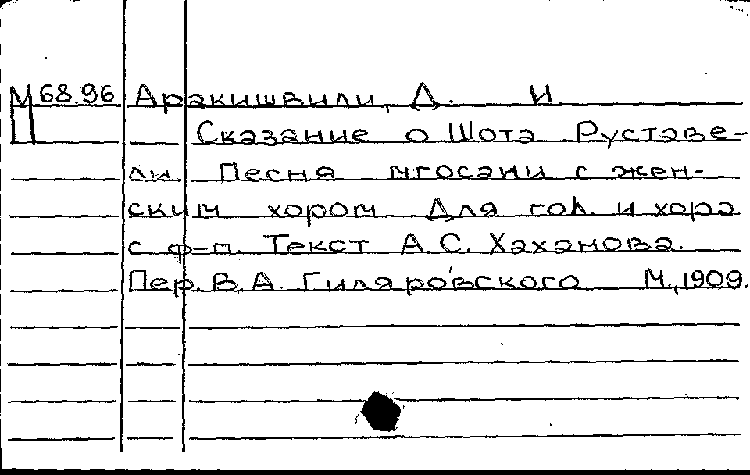 М 68.96 Аракишвили, Д. И.
П Сказание о Шота Руставе-
ли. Песня мгосани с жен-
ским хором. Для гол. и хора
с ф-п. Текст А.С. Хаханова.
Пер. В.А. Гиляровского М., 1909.